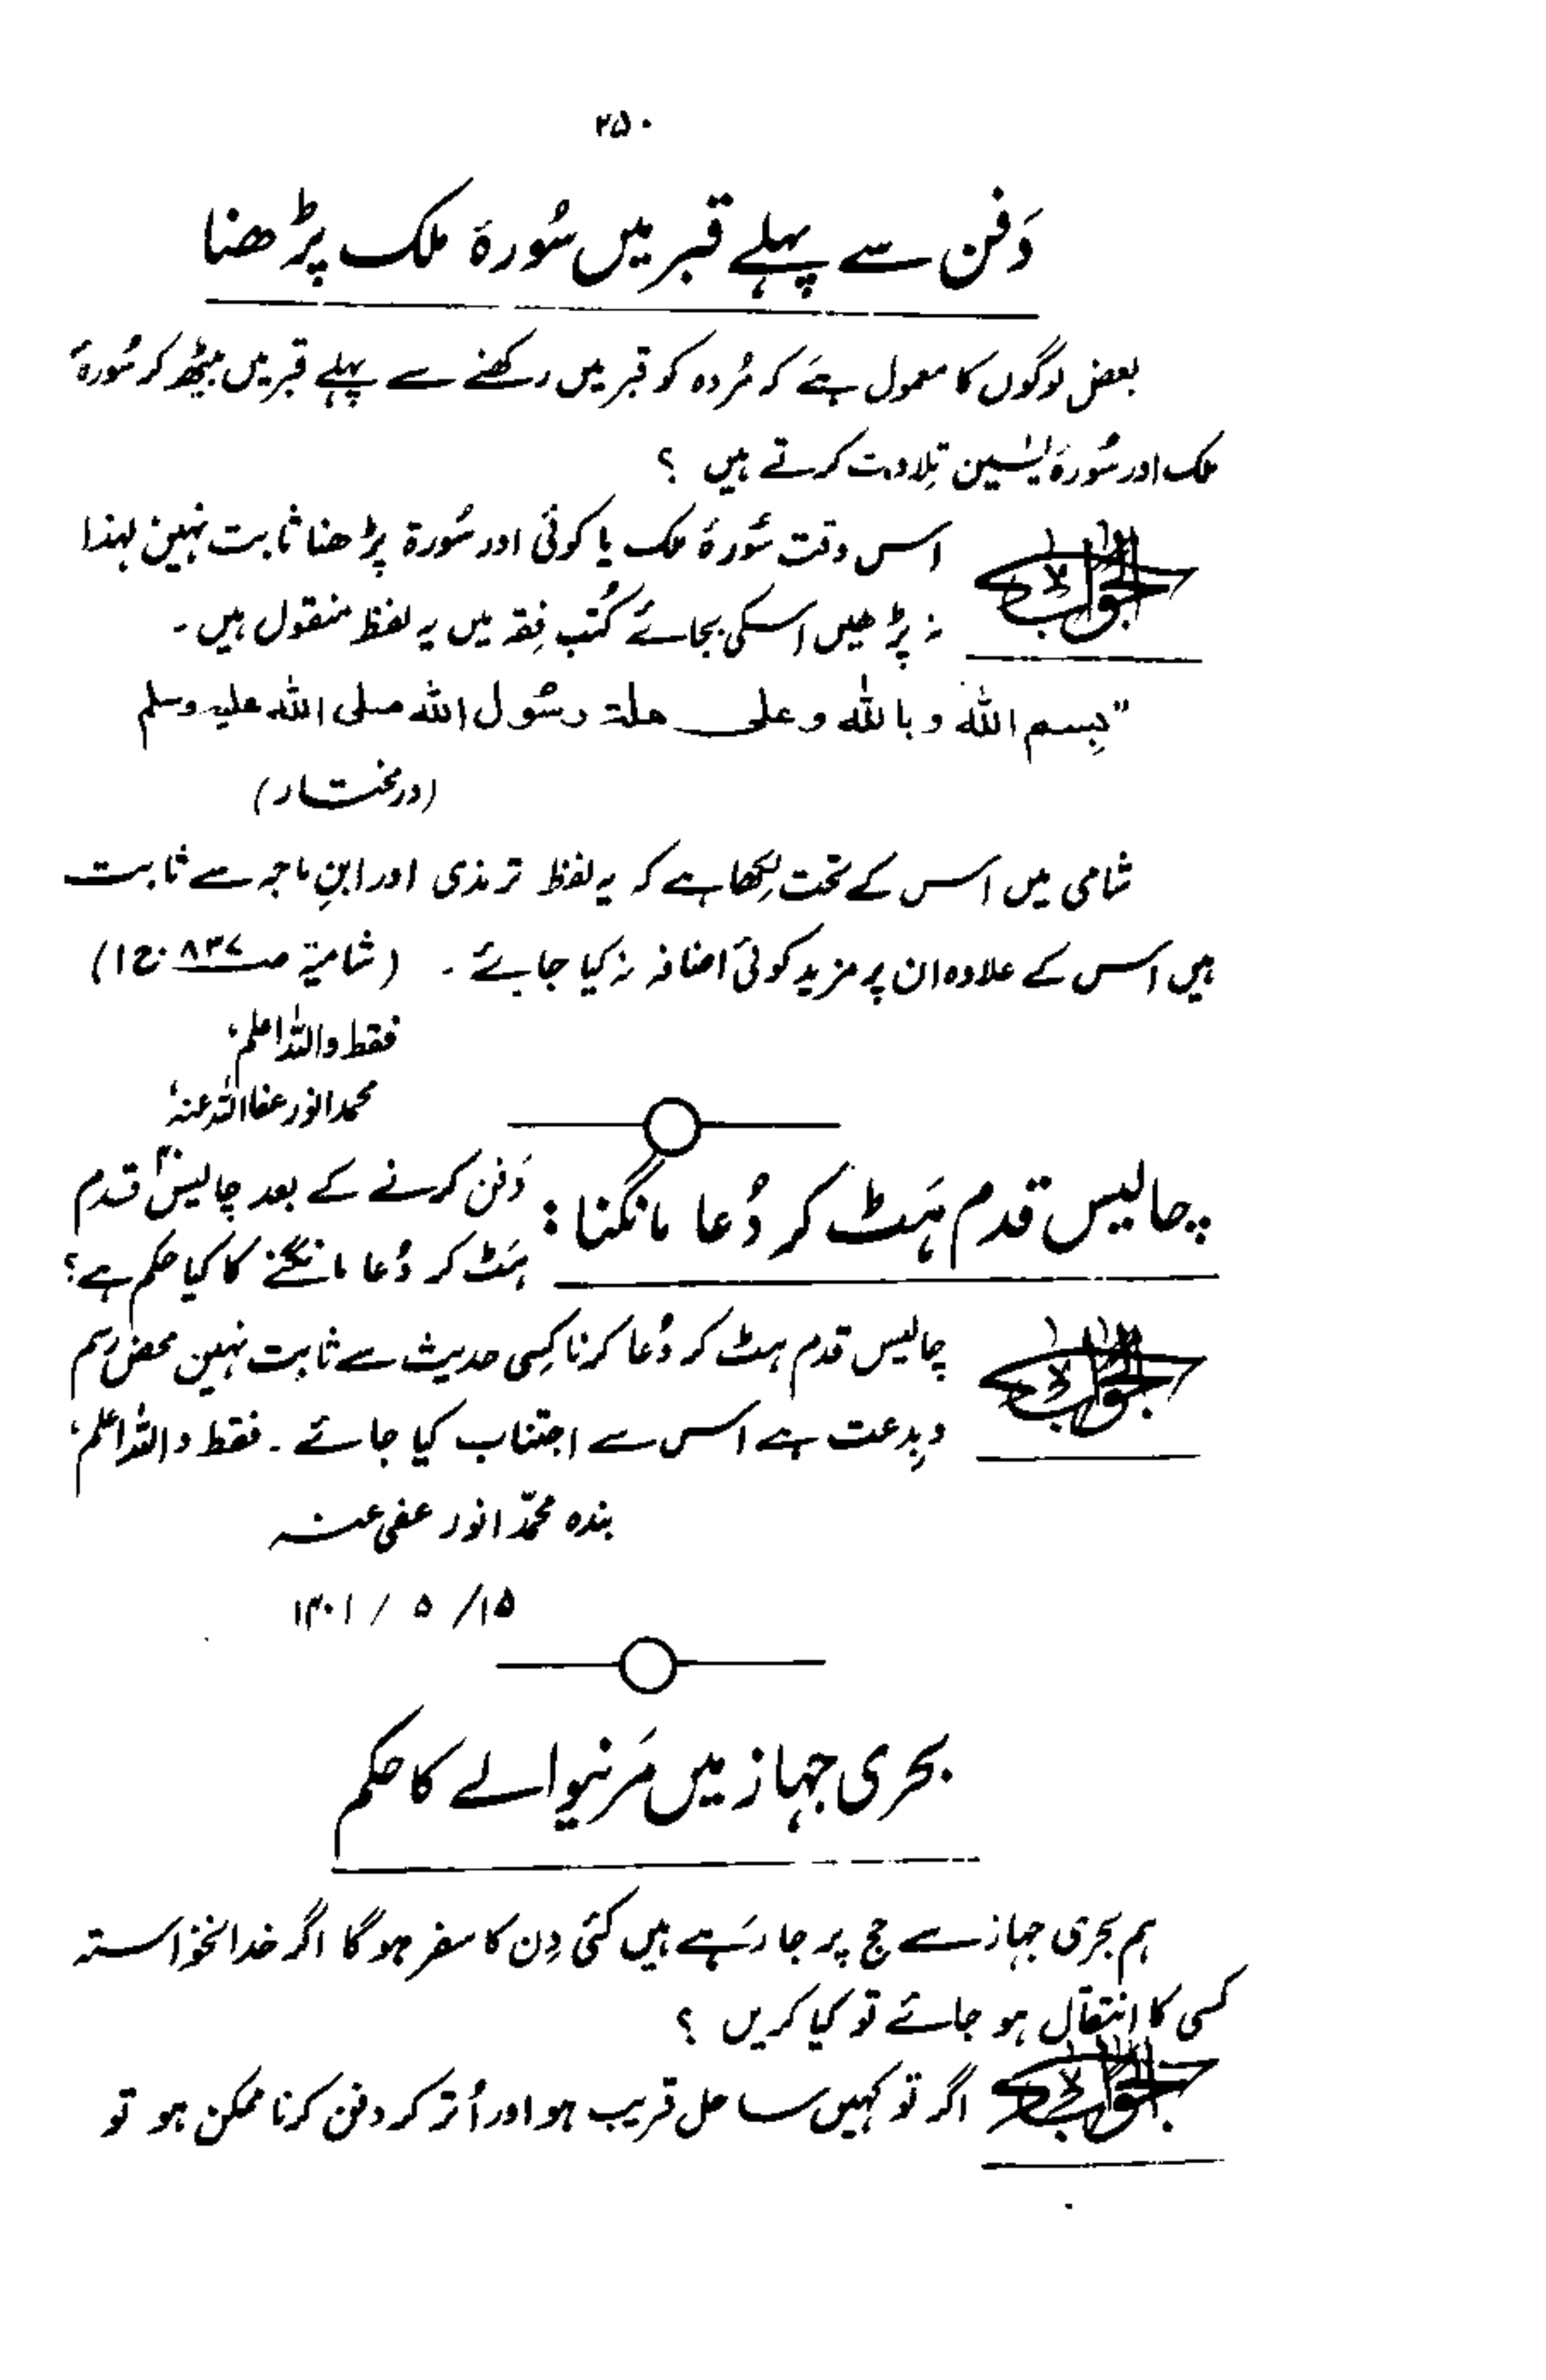 ۲۵۰
دَفن سے پہلے قبر میں سُورۂ ملک پڑھنا
بعض لوگوں کا معمول ہے کہ مُردہ کو قبر میں رکھنے سے پہلے قبر میں بیٹھ کر سُورۂ
ملک اور سُورۂ یٰسین تِلاوت کرتے ہیں ؟
الجواب اس وقت سُورۂ ملک یا کوئی اور سُورۃ پڑھنا ثابت نہیں لہذا
نہ پڑھیں اسکی بجائے کُتب فِقہ میں یہ لفظ منقول ہیں۔
"بِسم الله وبالله وعلى ملة رسُول الله صلى الله عليه وسلم
(درمختار)
شامی میں اس کے تحت لِکھا ہے کہ یہ لفظ ترمذی اور ابنِ ماجہ سے ثابت
ہیں اس کے علاوہ ان پر مزید کوئی اضافہ نہ کیا جائے۔ (شامیۃ صـ۸۳۷ ج۱)
فقط واللہ اعلم
محمد انور عفا اللہ عنہٗ
چالیس قدم ہَٹ کر دُعا مانگنا : دَفن کرنے کے بعد چالیس قدم
ہَٹ کر دُعا مانگنے کا کیا حکم ہے؟
الجواب چالیس قدم ہٹ کر دُعا کرنا کِسی حدیث سے ثابت نہیں محض رسم
وبِدعت ہے اس سے اجتناب کیا جائے۔ فقط واللہ اعلم
بندہ محمّد انور عفی عنہ
۱۵/ ۵ / ۱۴۰۱
بحری جہاز میں مَرنیوالے کا حکم
ہم بحری جہاز سے حج پر جا رہے ہیں کئی دِن کا سفر ہو گا اگر خدانخواستہ
کسی کا انتقال ہو جائے تو کیا کریں ؟
الجواب اگر تو کہیں ساحل قریب ہو اور اُتر کر دفن کرنا ممکن ہو تو